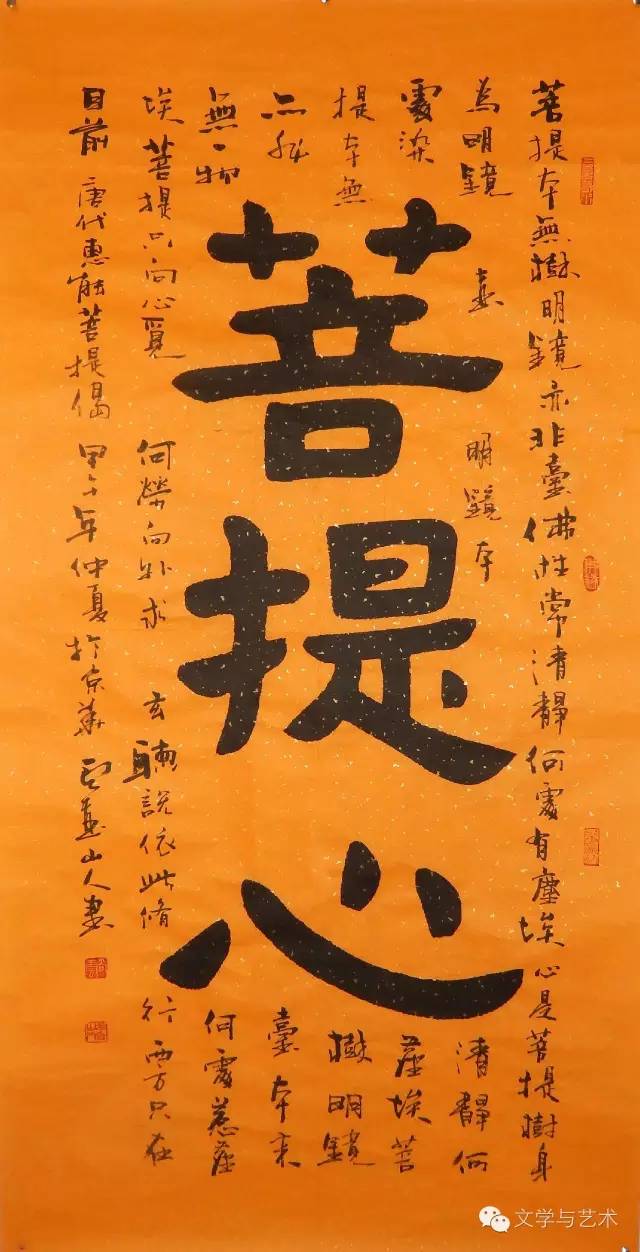 菩提心
菩提本無樹明鏡亦非臺佛性常清靜何處有塵埃心是菩提樹身
為明鏡 臺 明鏡本 清靜何
處染 塵埃菩
提本無 樹明鏡
亦非 臺本来
無一物 何處惹塵
埃菩提只向心覓 何勞向外求 玄 聽說依此脩 行西方只在
目前 唐代惠能菩提偈 甲午年仲夏於京華 山人書
文学与艺术